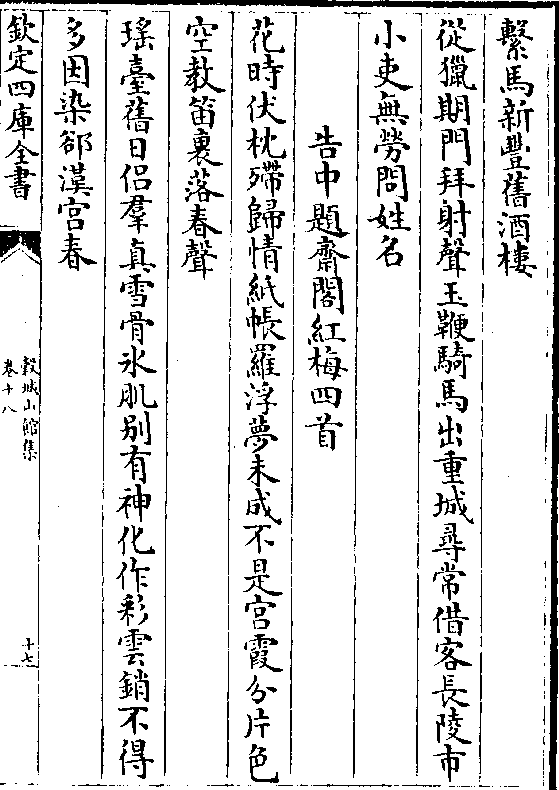 繫馬新豐舊酒樓
從獵期門拜射聲玉鞭騎馬出重城尋常借客長陵市
小吏無勞問姓名
告中題齋閣紅梅四首
花時伏枕殢歸情紙帳羅浮夢未成不是宫霞分片色
空教笛裏落春聲
瑤臺舊日侣羣真雪骨氷肌别有神化作彩雲銷不得
多因染郤漢宫春
欽定四庫全書
榖城山館集
卷十八
十七